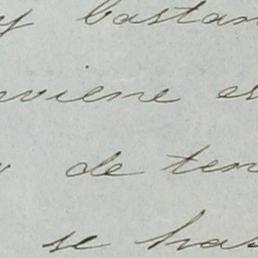 y bastan
nviene es
de ten
se has